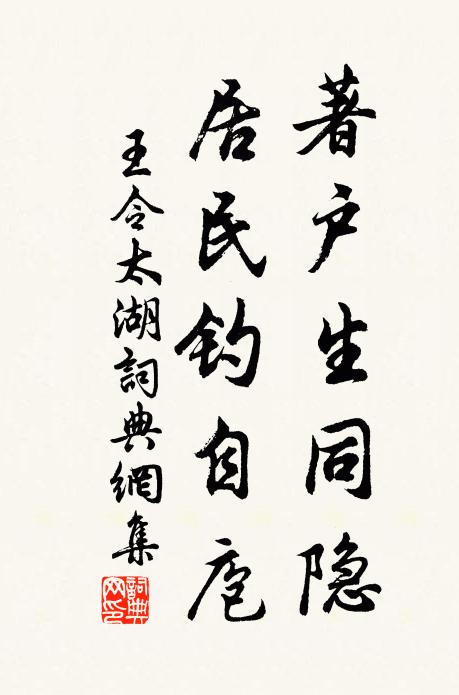 著户生同隐
居民钓自庖
王令太湖詞典網集
詞典
网印